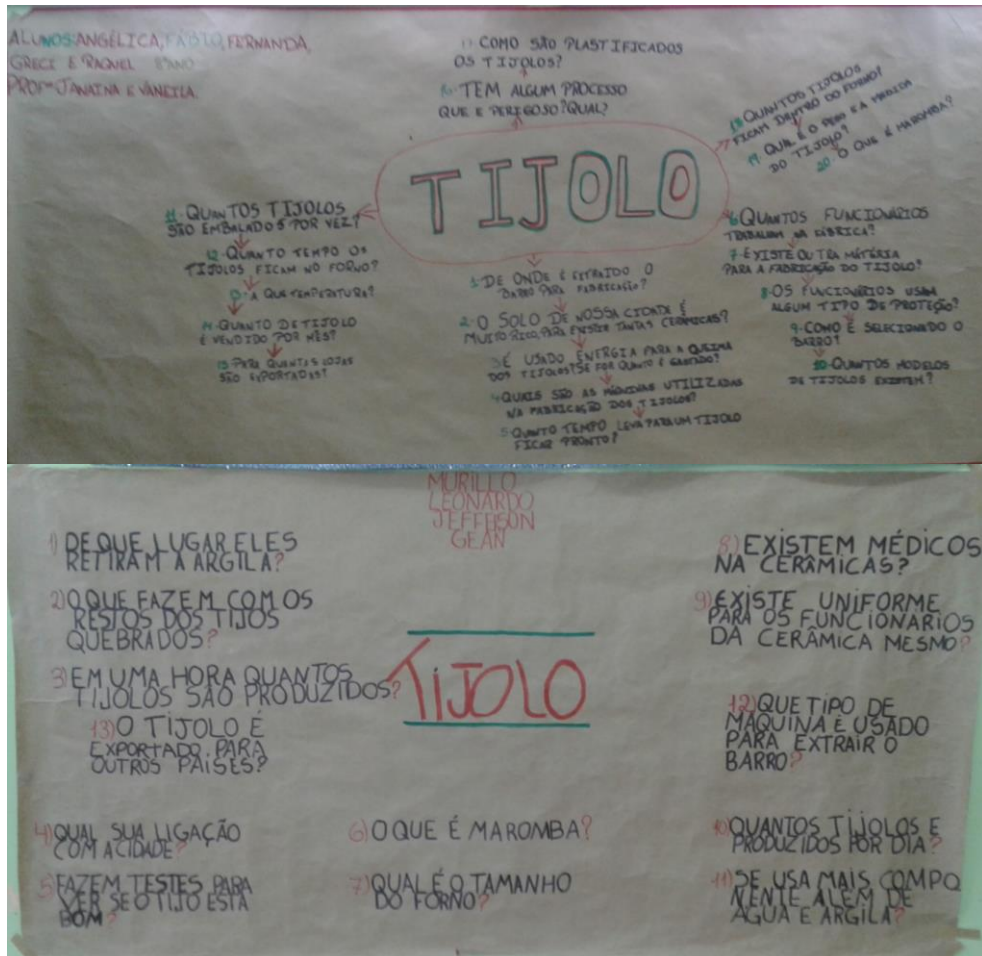 ALUNOS: ANGÉLICA, FÁBIO, FERNANDA,
GRECI E RAQUEL 8ºANO
PROFªS JANAINA E VANEILA.
COMO SÃO PLASTIFICADOS
OS TIJOLOS?
16- TEM ALGUM PROCESSO
QUE E PERIGOSO? QUAL?
18 QUANTOS TIJOLOS
FICAM DENTRO DO FORNO?
19- QUAL É O PESO E A MEDIDA
DO TIJOLO?
20- O QUE É MAROMBA?
TIJOLO
11-QUANTOS TIJOLOS
SÃO EMBALADOS POR VEZ?
12-QUANTO TEMPO OS
TIJOLOS FICAM NO FORNO?
13-A QUE TEMPERATURA?
14-QUANTO DE TIJOLO
É VENDIDO POR MÊS?
15-PARA QUANTAS LOJAS
SÃO EXPORTADAS?
1-DE ONDE É EXTRAIDO O
BARRO PARA FABRICAÇÃO?
2-O SOLO DE NOSSA CIDADE É
MUITO RICO, PARA EXISTIR TANTAS CERÂMICAS?
3 É USADO ENERGIA PARA A QUEIMA
DOS TIJOLOS? SE FOR QUANTO É GASTADO?
4-QUAIS SÃO AS MÁQUINAS UTILIZADAS
NA FABRICAÇÃO DOS TIJOLOS?
5-QUANTO TEMPO LEVA PARA UM TIJOLO
FICAR PRONTO?
6-QUANTOS FUNCIONÁRIOS
TRABALHAM NA FÁBRICA?
7-EXISTE OUTRA MATÉRIA
PARA A FABRICAÇÃO DO TIJOLO?
8-OS FUNCIONÁRIOS USAM
ALGUM TIPO DE PROTEÇÃO?
9-COMO É SELECIONADO O
BARRO?
10-QUANTOS MODELOS
DE TIJOLOS EXISTEM?
MURILLO
LEONARDO
JEFFERSON
GEAN
1) DE QUE LUGAR ELES
RETIRAM A ARGILA?
2) O QUE FAZEM COM OS
RESTOS DOS TIJOS
QUEBRADOS?
3) EM UMA HORA QUANTOS
TIJOLOS SÃO PRODUZIDOS?
13) O TIJOLO É
EXPORTADO PARA
OUTROS PAÍSES?
4) QUAL SUA LIGAÇÃO
COM A CIDADE?
5 FAZEM TESTES PARA
VER SE O TIJO ESTA
BOM?
TIJOLO
6) O QUE É MAROMBA?
7) QUAL É O TAMANHO
DO FORNO?
8) EXISTEM MÉDICOS
NA CERÂMICAS?
9) EXISTE UNIFORME
PARA OS FUNCIONARIOS
DA CERÂMICA MESMO?
12) QUE TIPO DE
MAQUINA É USADO
PARA EXTRAIR O
BARRO?
10) QUANTOS TIJOLOS E
PRODUZIDOS POR DIA?
11) SE USA MAIS COMPO
NENTE ALEM DE
AGUA E ARGILA?